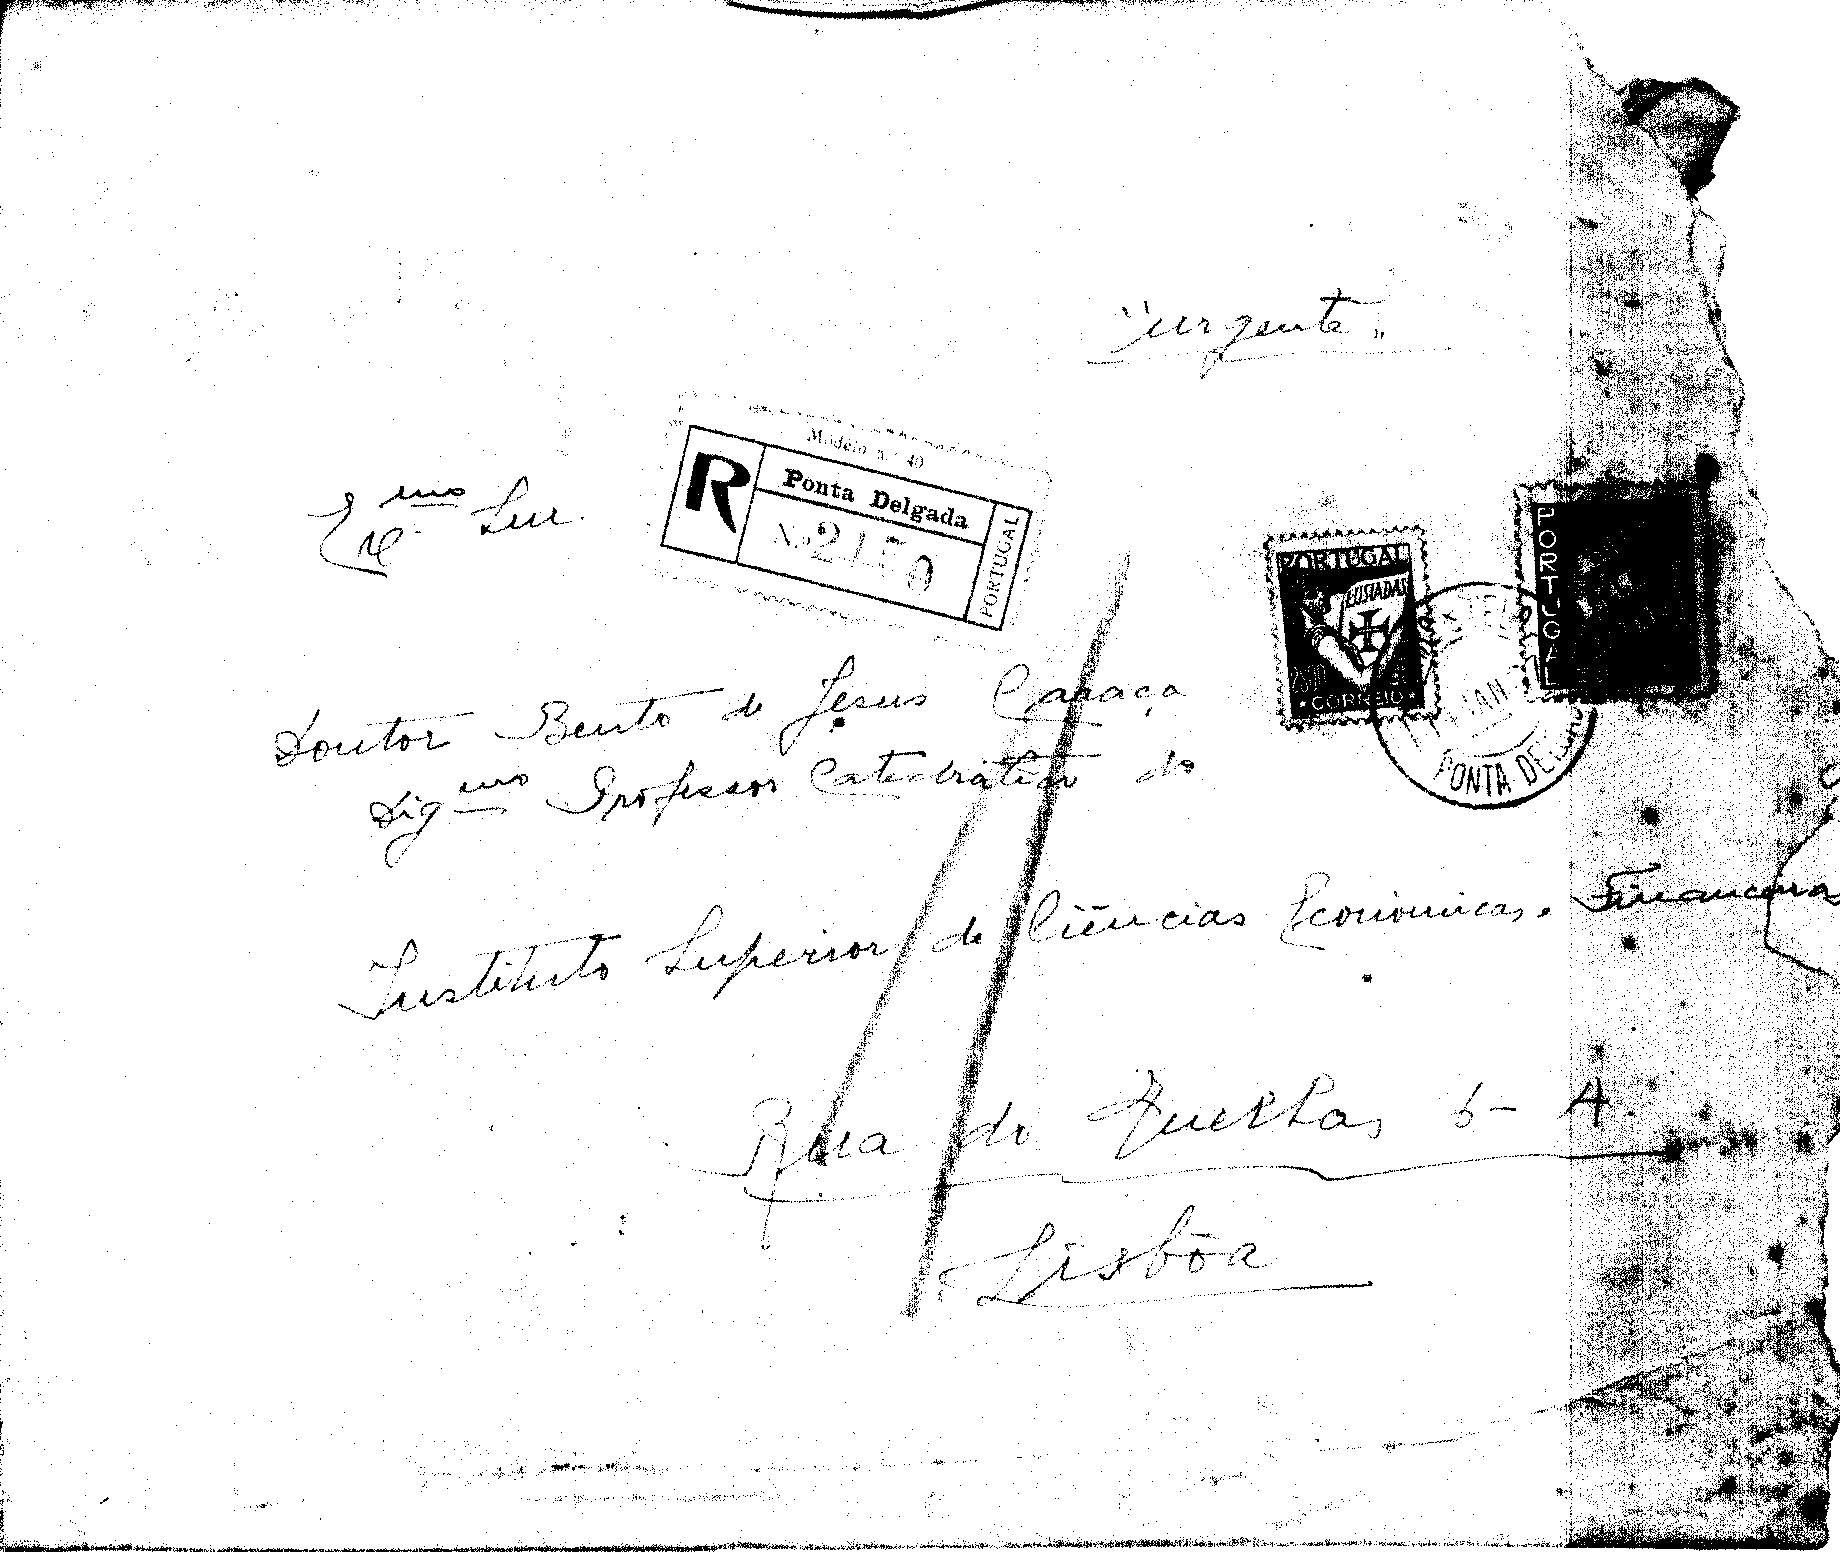 "urgente"
Modelo n.º 40
R Ponta Delgada PORTUGAL
N.º 2170
Ex.mo Snr.
PORTUGAL
LUSIADAS
CORREIO
PORTUGAL
JAN
PONTA DEL
Doutor Bento de Jesus Caraça
Dig.mo Professor Catedrático do
Instituto Superior de Ciências Económicas e Financeiras
Rua do Quelhas 6-A.
Lisbôa